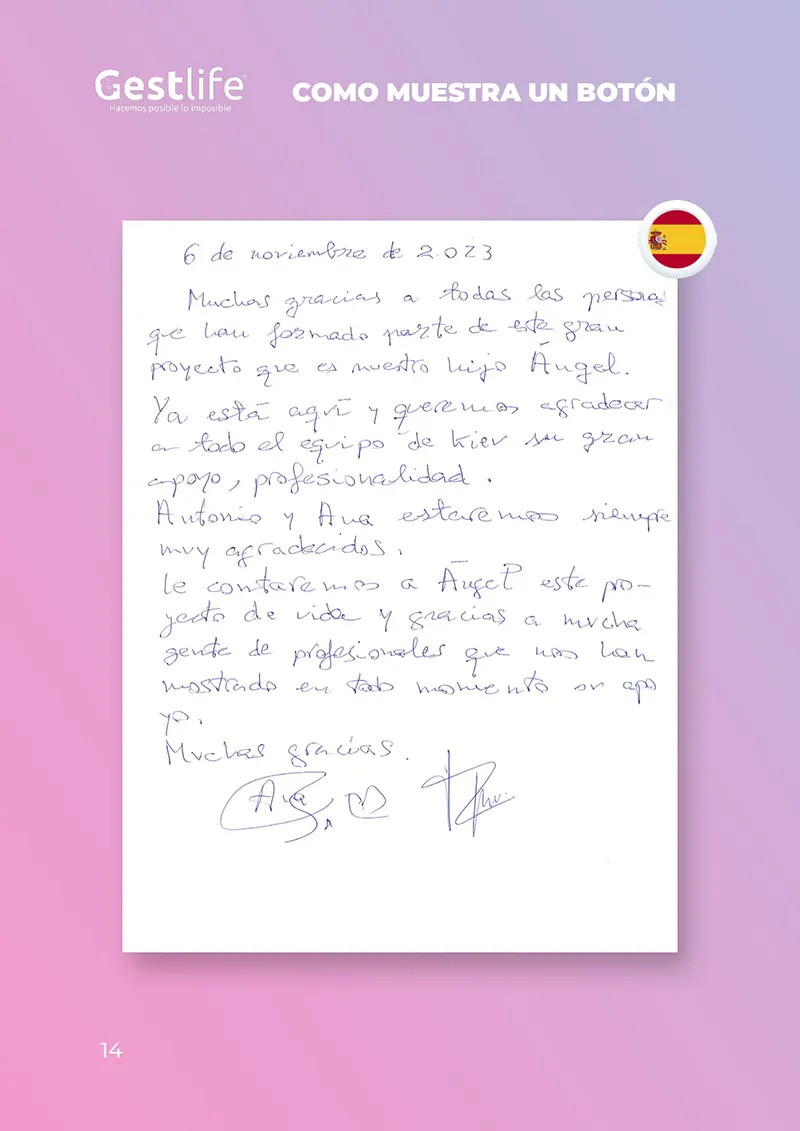 Gestlife
Hacemos posible lo imposible
COMO MUESTRA UN BOTÓN
6 de noviembre de 2.023
Muchas gracias a todas las personas
que han formado parte de este gran
proyecto que es nuestro hijo Ángel.
Ya está aquí y queremos agradecer
a todo el equipo de Kiev su gran
apoyo, profesionalidad.
Antonio y Ana estaremos siempre
muy agradecidos.
Le contaremos a Ángel este pro-
yecto de vida y gracias a mucha
gente de profesionales que nos han
mostrado en todo momento su apo
yo.
Muchas gracias.
Ana
14